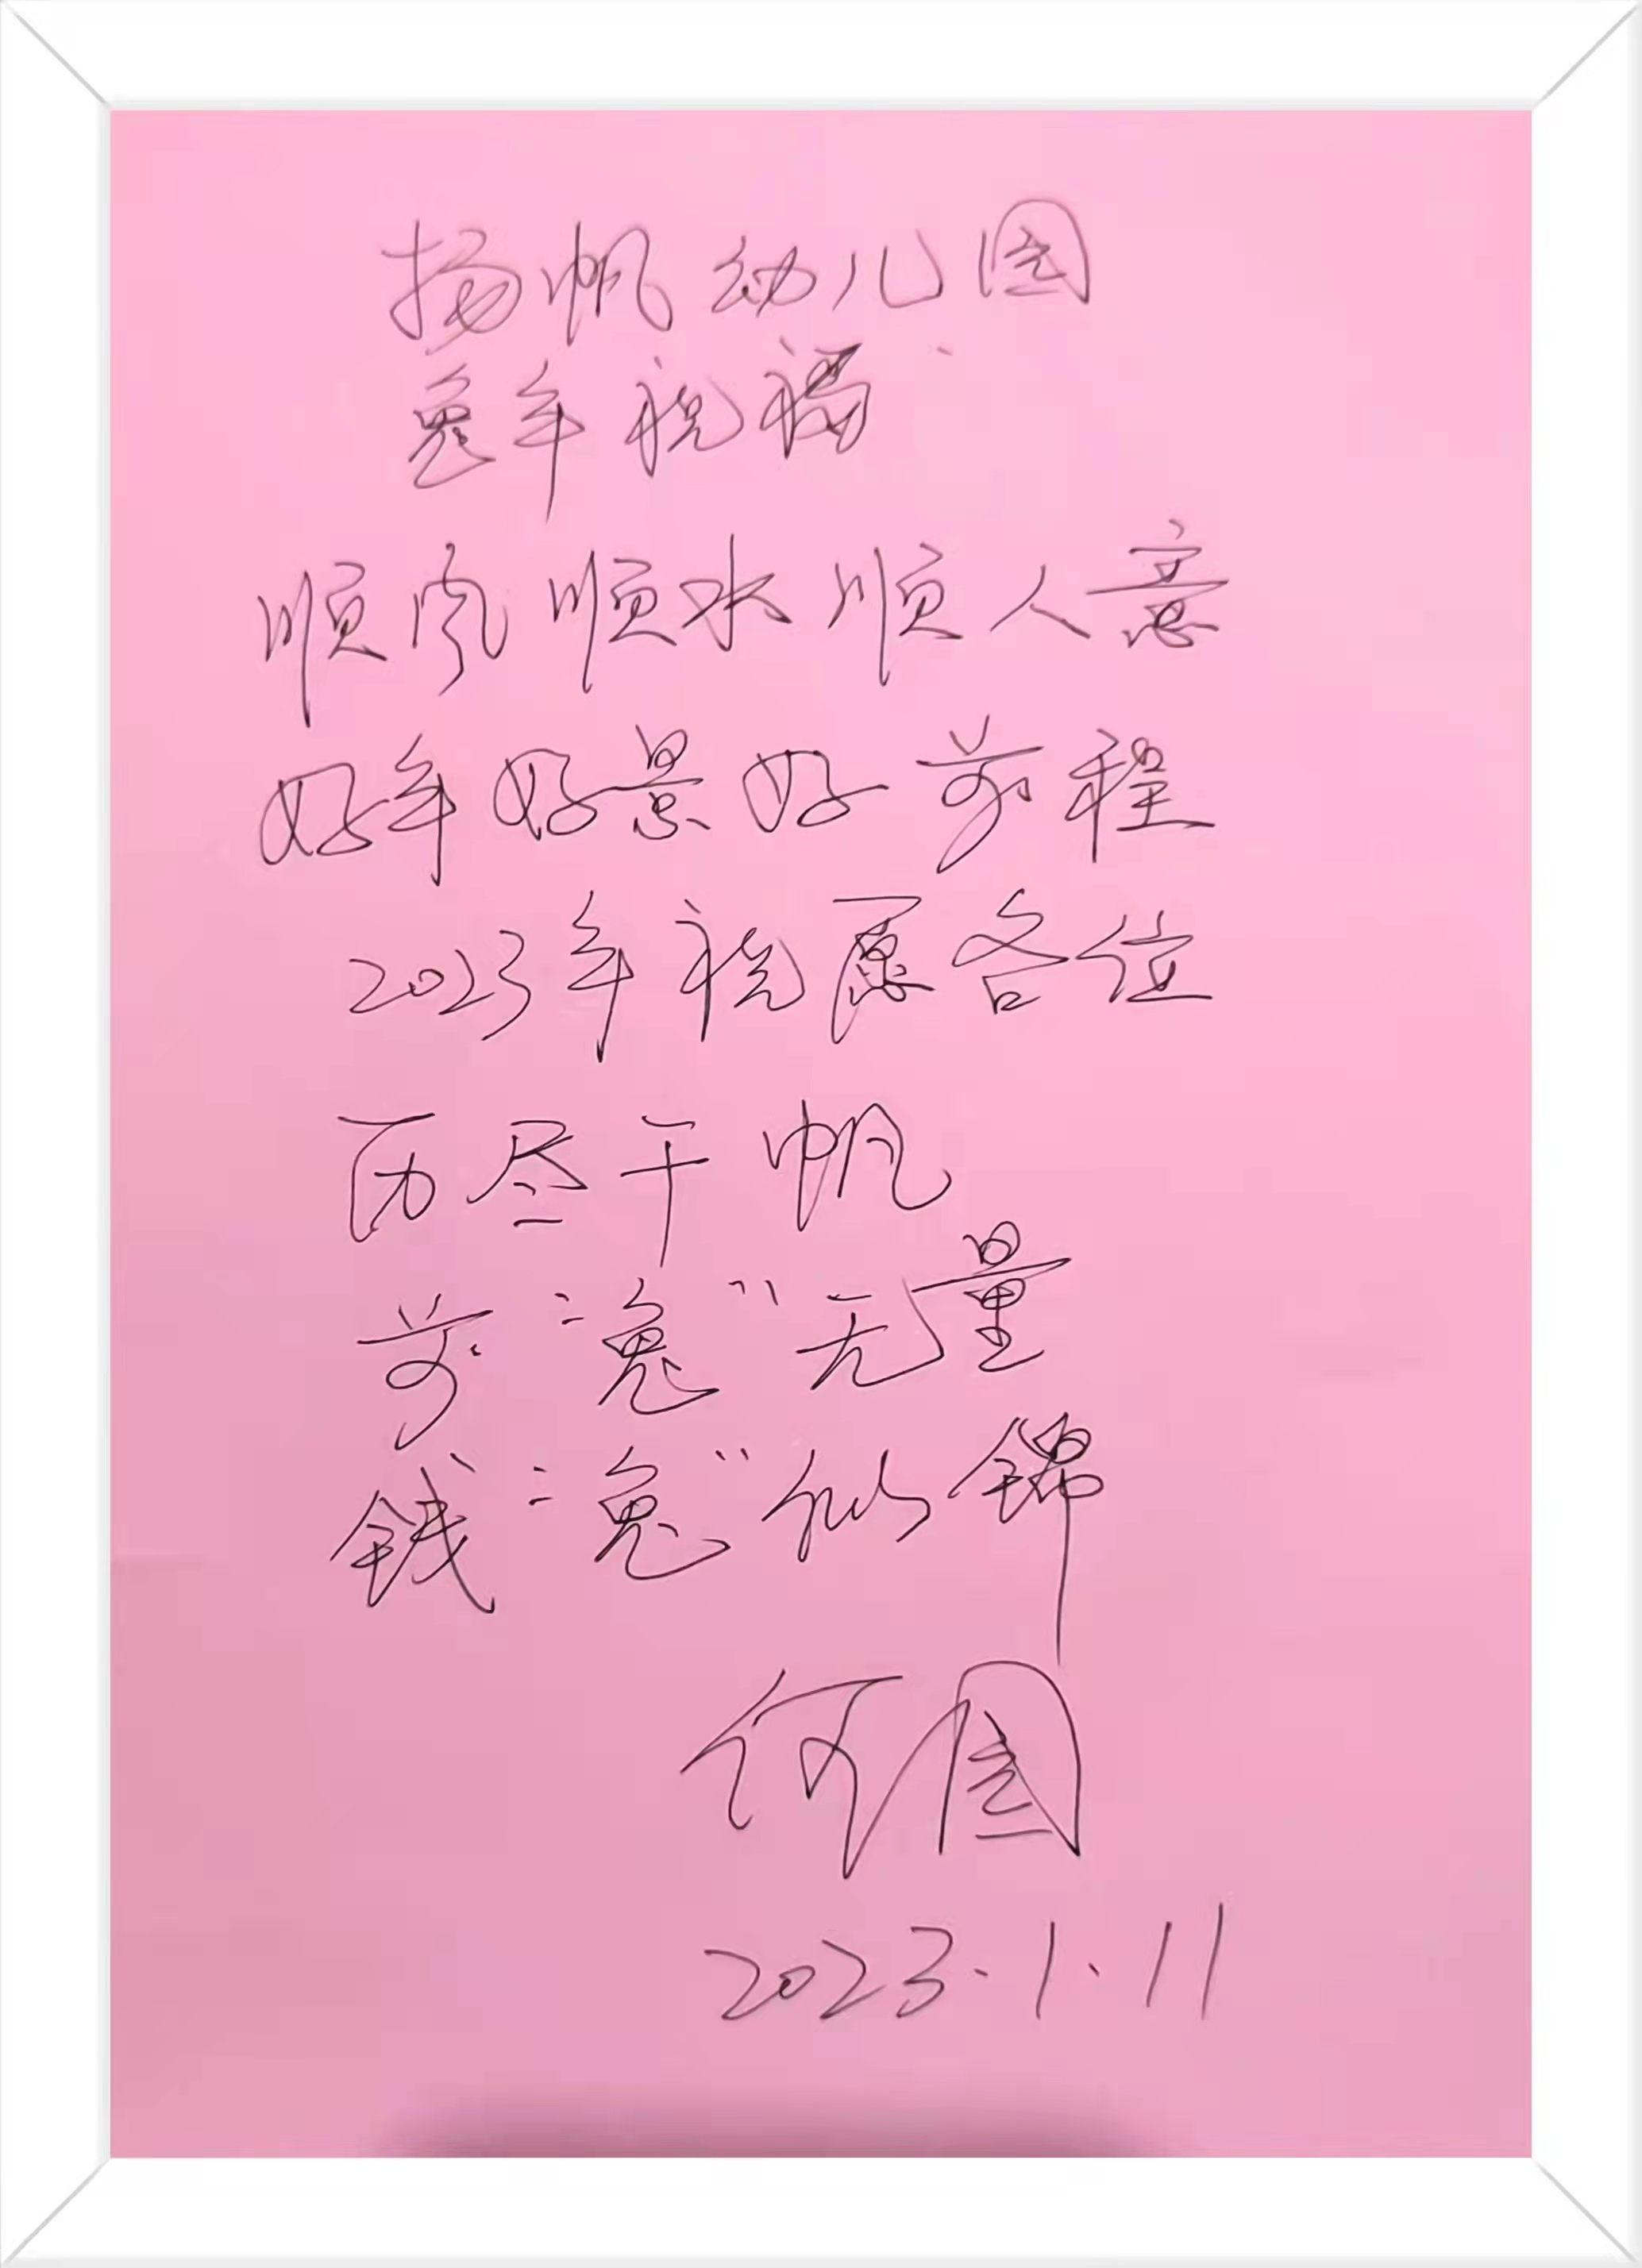 扬帆幼儿园
兔年祝福
顺风顺水顺人意
好年好景好前程
2023年祝愿各位
历尽千帆
前“兔”无量
钱“兔”似锦
何园
2023.1.11